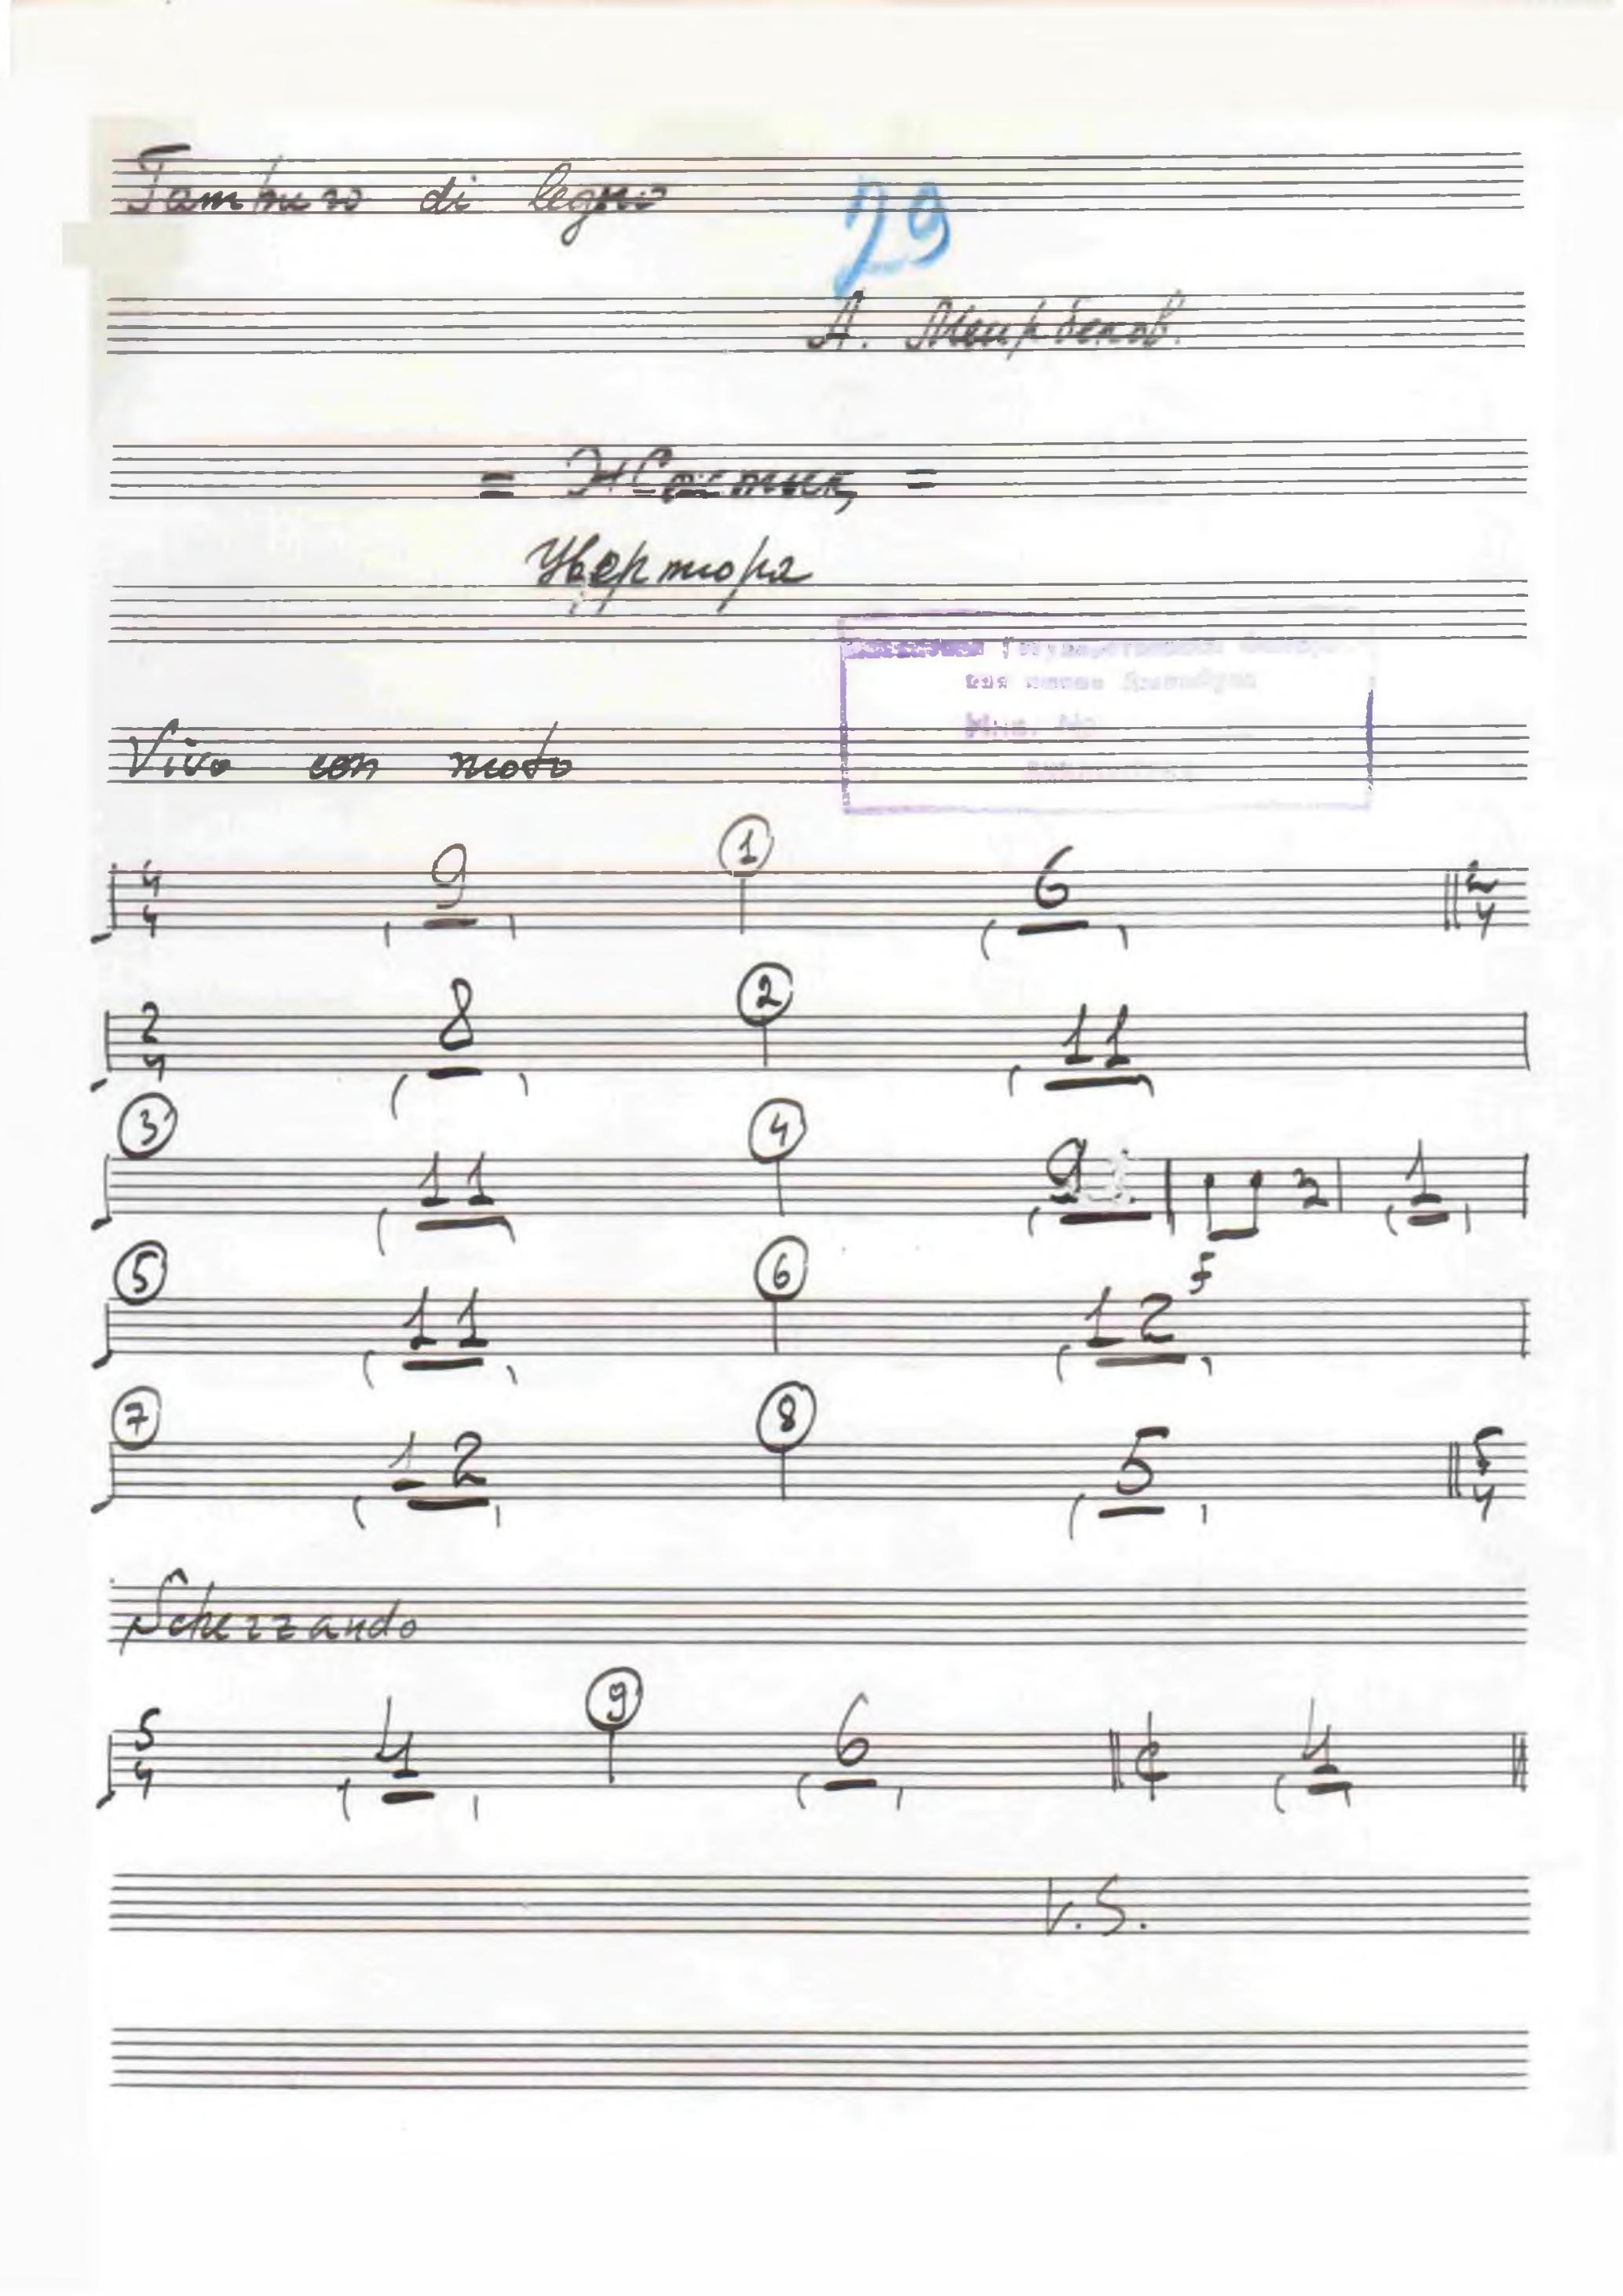 Tamburo di legno
29
А. Меирбеков.
Увертюра
Государственной
имени
Инв. №
Vivo con moto
4 4 9 1 6 2 4
2 4 8 2 11
3 11 4 9 1
f
5 11 6 12
7 12 8 5 5 4
Scherzando
5 4 4 9 6 ¢ 4
V.S.